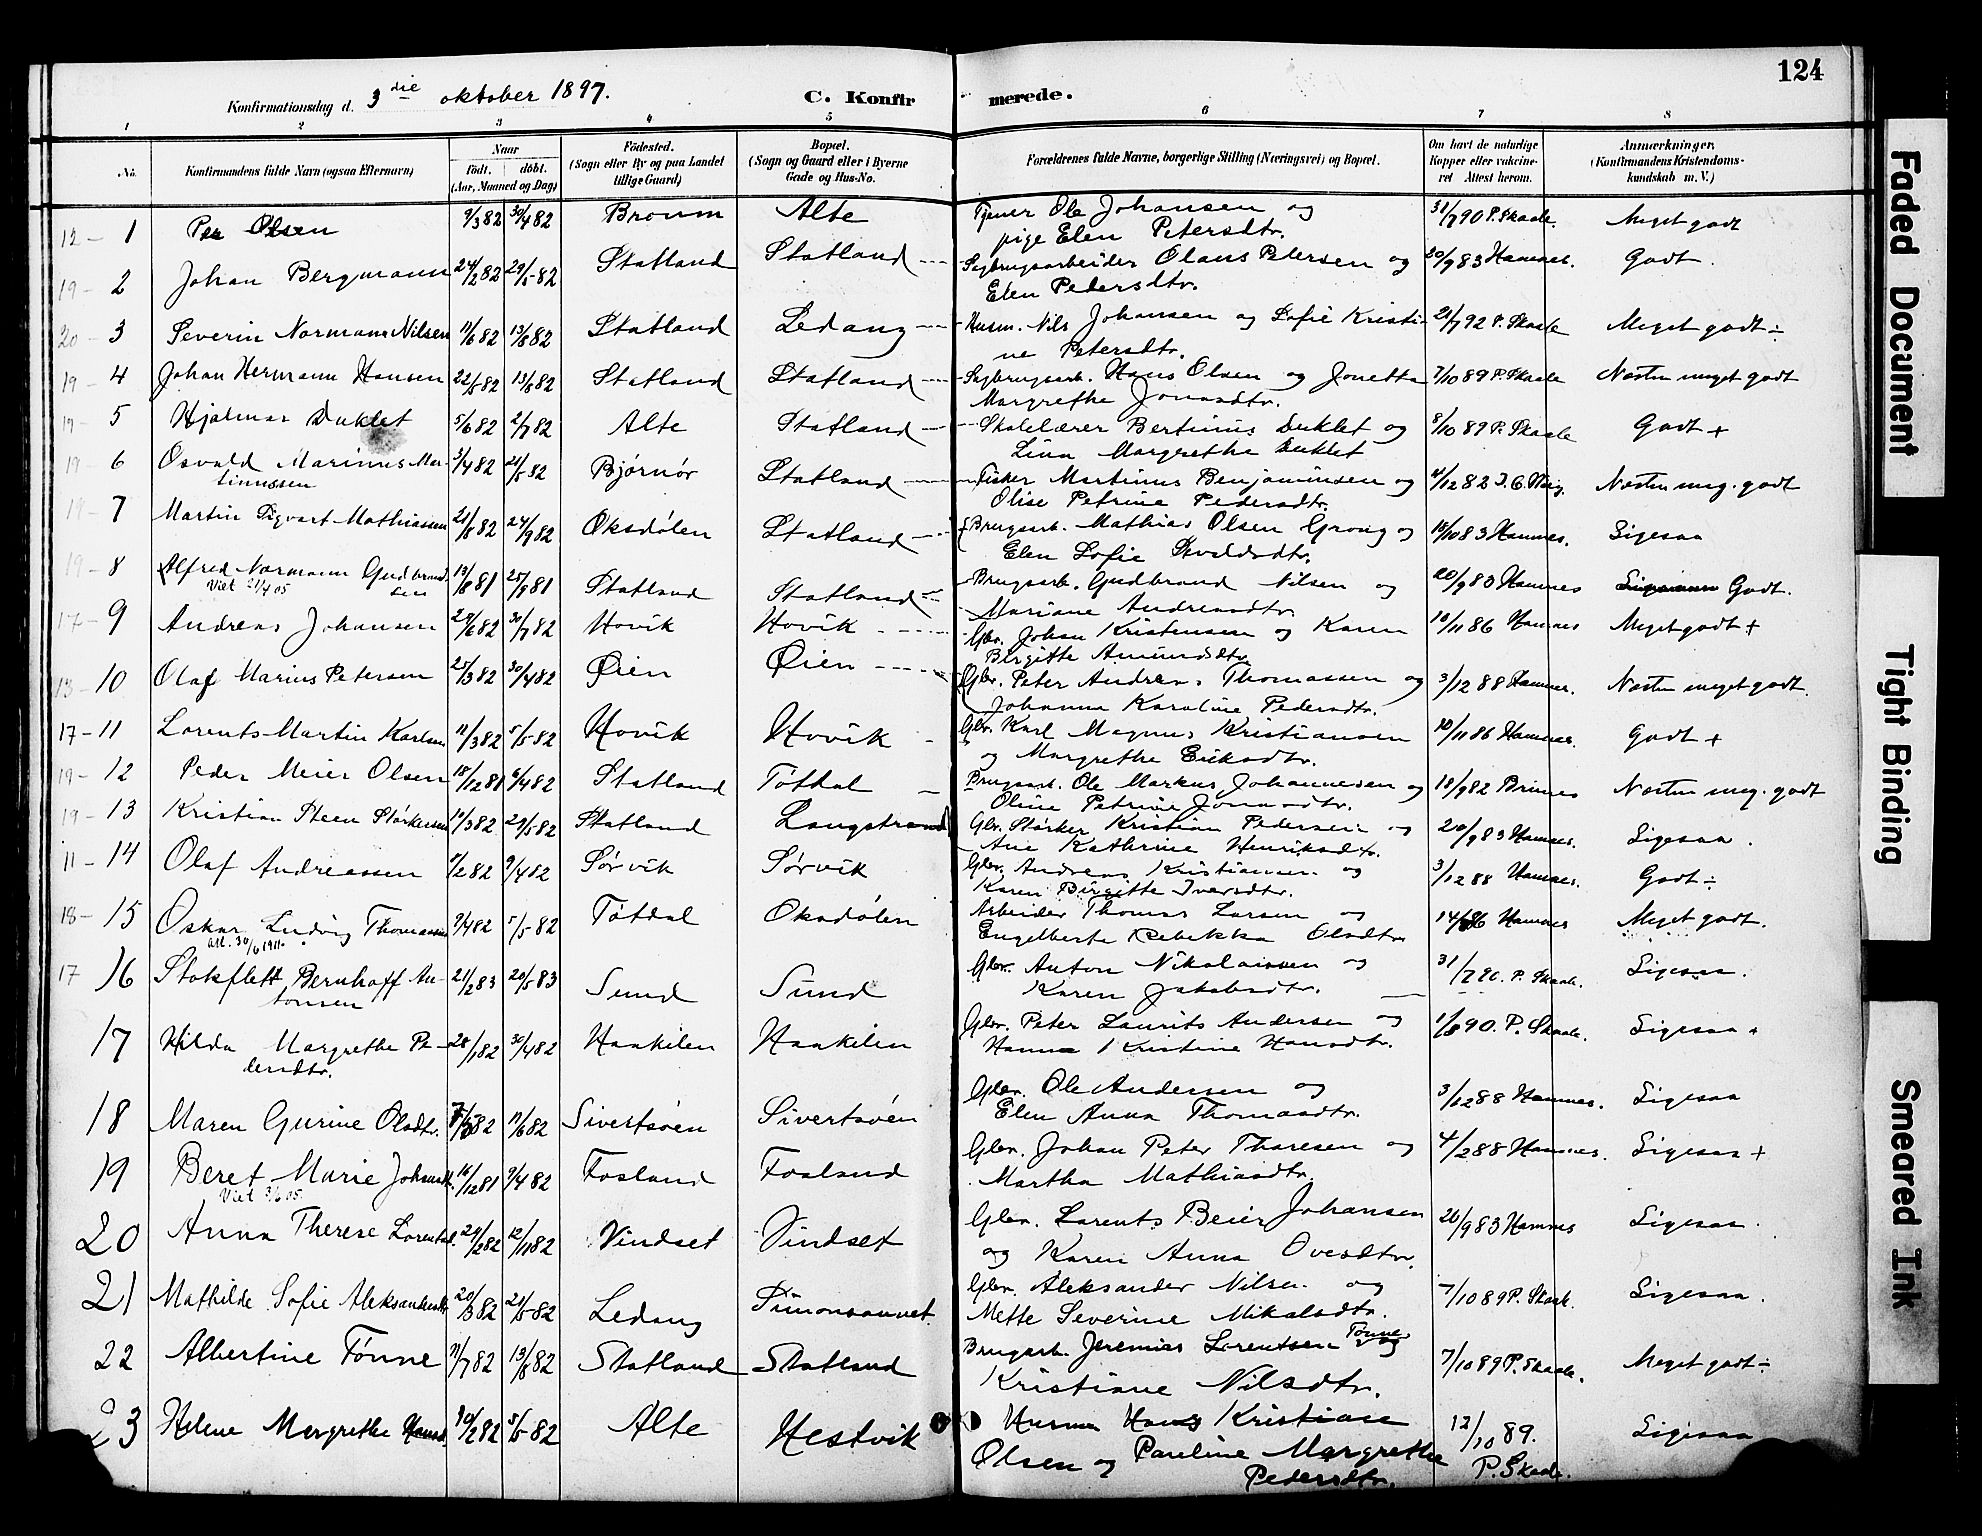 124
Konfirmationsdag d. 3die oktober 1897.
C. Konfirmerede.
1 2 3 4 5 6 7 8
No.
Konfirmandens fulde Navn (ogsaa Efternavn)
Naar
født. døbt.
(Aar, Maaned og Dag)
Fødested.
(Sogn eller By og paa Landet
tillige Gaard)
Bopæl.
(Sogn og Gaard eller i Byerne
Gade og Hus-No.
Forældrenes fulde Navne, borgerlige Stilling (Næringsvei) og Bopæl.
Om havt de naturlige
Kopper eller vakcine-
ret Attest herom.
Anmærkninger.
(Konfirmandens Kristendoms-
kundskab m. V.)
12 - 1 Per Olsen 9/3 82 30/4 82 Alte Tjener Ole Johansen og 31/7 90 P. Skaale. Meget godt
pige Elen Petersdtr.
19 - 2 Johan Bergmann 24/2 82 29/5 82 Statland Statland Sagbrugsarbeider Olaus Petersen og 20/9 83 Hamnes. Godt.
Elen Pedersdtr.
20 - 3 Severin Normann Nilsen 11/6 82 13/8 82 Statland Ledang Husm. Nils Johansen og Sofie Kristi- 21/7 92 P. Skaale Meget godt ÷
ne Petersdtr.
19 - 4 Johan Hermann Hansen 22/5 82 13/6 82 Statland Statland Sagbrugsarb. Hans Olsen og Jonetta 7/10 89 P. Skaale Næsten meget godt
Margrethe Jonasdtr.
19 - 5 Hjalmar Duklet 5/6 82 2/7 82 Alte Statland Skolelærer Bertinus Duklet og 8/10 89 P. Skaale Godt +
Lina Margrethe Duklet
19 - 6 Osvald Marinus Mar- 3/4 82 21/5 82 Bjørnør Statland Fisker Martinus Benjaminsen og Næsten meg. godt
tinussen Olise Petrine Pedersdtr.
19 - 7 Martin Sigvart Mathiassen 21/8 82 24/9 82 Oksdølen Statland Brugsarb. Mathias Olsen Grong og 18/10 83 Hamnes. Ligesaa
Elen Sofie
19 - 8 Alfred Normann Gudbrand- 19/8 81 25/9 81 Statland Statland Brugsarb. Gudbrand Nilsen og 20/9 83 Hamnes Godt.
Viet 21/4 05 sen Mariane Andreasdtr.
17 - 9 Andreas Johansen 28/6 82 30/7 82 Hovik Hovik Gbr. Johan Kristensen og Karen 10/11 86 Hamnes Meget godt +
Birgitte Amundsdtr
13 - 10 Olaf Marius Petersen 25/3 82 30/4 82 Øien Øien Gbr. Peter Andreas Thomassen og 3/12 88 Hamnes. Næsten meget godt.
Johanna Karoline Pedersdtr.
17 - 11 Lorents Martin Karlsen 11/3 82 5/5 82 Hovik Hovik Gbr. Karl Magnus Kristiansen 10/11 86 Hamnes. Godt +
og Margrethe Eriksdtr.
19 - 12 Peder Meier Olsen 18/12 81 6/4 82 Statland Tøttal Brugsarb. Ole Markus Johannesen og 18/9 82 Brines Næsten meg. godt
Oline Petrine Jonasdtr.
19 - 13 Kristian Steen Størkersen 10/3 82 29/5 82 Statland Langstrand Gbr. Størker Kristian Pedersen og 20/9 83 Hamnes. Ligesaa.
Ane Kathrine Henriksdtr.
11 - 14 Olaf Andreassen 7/2 82 9/4 82 Sørvik Sørvik Gbr. Andreas Kristiansen og 3/12 88 Hamnes. Godt ÷
Karen Birgitte Iversdtr.
18 - 15 Oskar Ludvig Thomassen 9/4 82 5/5 82 Tøtdal Oksdølen Arbeider Thomas Larsen og Hamnes Meget godt.
att. 30/6 1911. Engelberta Rebekka Olsdtr.
17 16 Stokflett Bernhoff An- 21/2 83 20/5 83 Sund Sund Gbr. Anton Nikolaisen og 31/7 90. P. Skaale. Ligesaa.
tonsen Karen Jakobsdtr.
17 Hilda Margrethe Pe- 28/1 82 30/4 82 Haakilen Haakilen Gbr. Peter Laurits Andersen og 1/8 90. P. Skaale. Ligesaa +
dersdtr. Hanna Kristine Hansdtr.
18 Maren Gurine Olsdtr. 11/6 82 Sivertsøen Sivertsøen Gbr. Ole Andersen og 3/12 88 Hamnes. Ligesaa
Elen Anna Thomasdtr.
19 Beret Marie Johansdtr. 16/12 81 9/4 82 Fosland Fosland Gbr. Johan Peter Tharesen og 4/2 88 Hamnes. Ligesaa +
Martha Mathiasdtr.
20 Anna Therese Lorentsd. 24/2 82 12/11 82 Vindset Vindset Gbr. Lorents Beier Johansen 26/9 83 Hamnes Ligesaa.
og Karen Anna Ovesdtr.
21 Mathilde Sofie Aleksandersdtr 20/3 82 21/5 82 Ledang Simonsavnet. Gbr. Aleksander Nilsen og 7/10 89 P. Skaale. Ligesaa.
Mette Severine Mikalsdtr.
22 Albertine Tønne 11/7 82 13/8 82 Statland Statland Brugsarb. Jeremias Lorentsen Tønne og 7/10 89 P. Skaale. Meget godt ÷
Kristiane Nilsdtr.
23 Helene Margrethe Hansd. 10/2 82 5/5 82 Alte Hestvik Husm Hans Kristian 12/10 89. Ligesaa
Olsen og Pauline Margrethe P. Skaale.
Pedersdtr.
Faded Document
Tight Binding
Smeared Ink